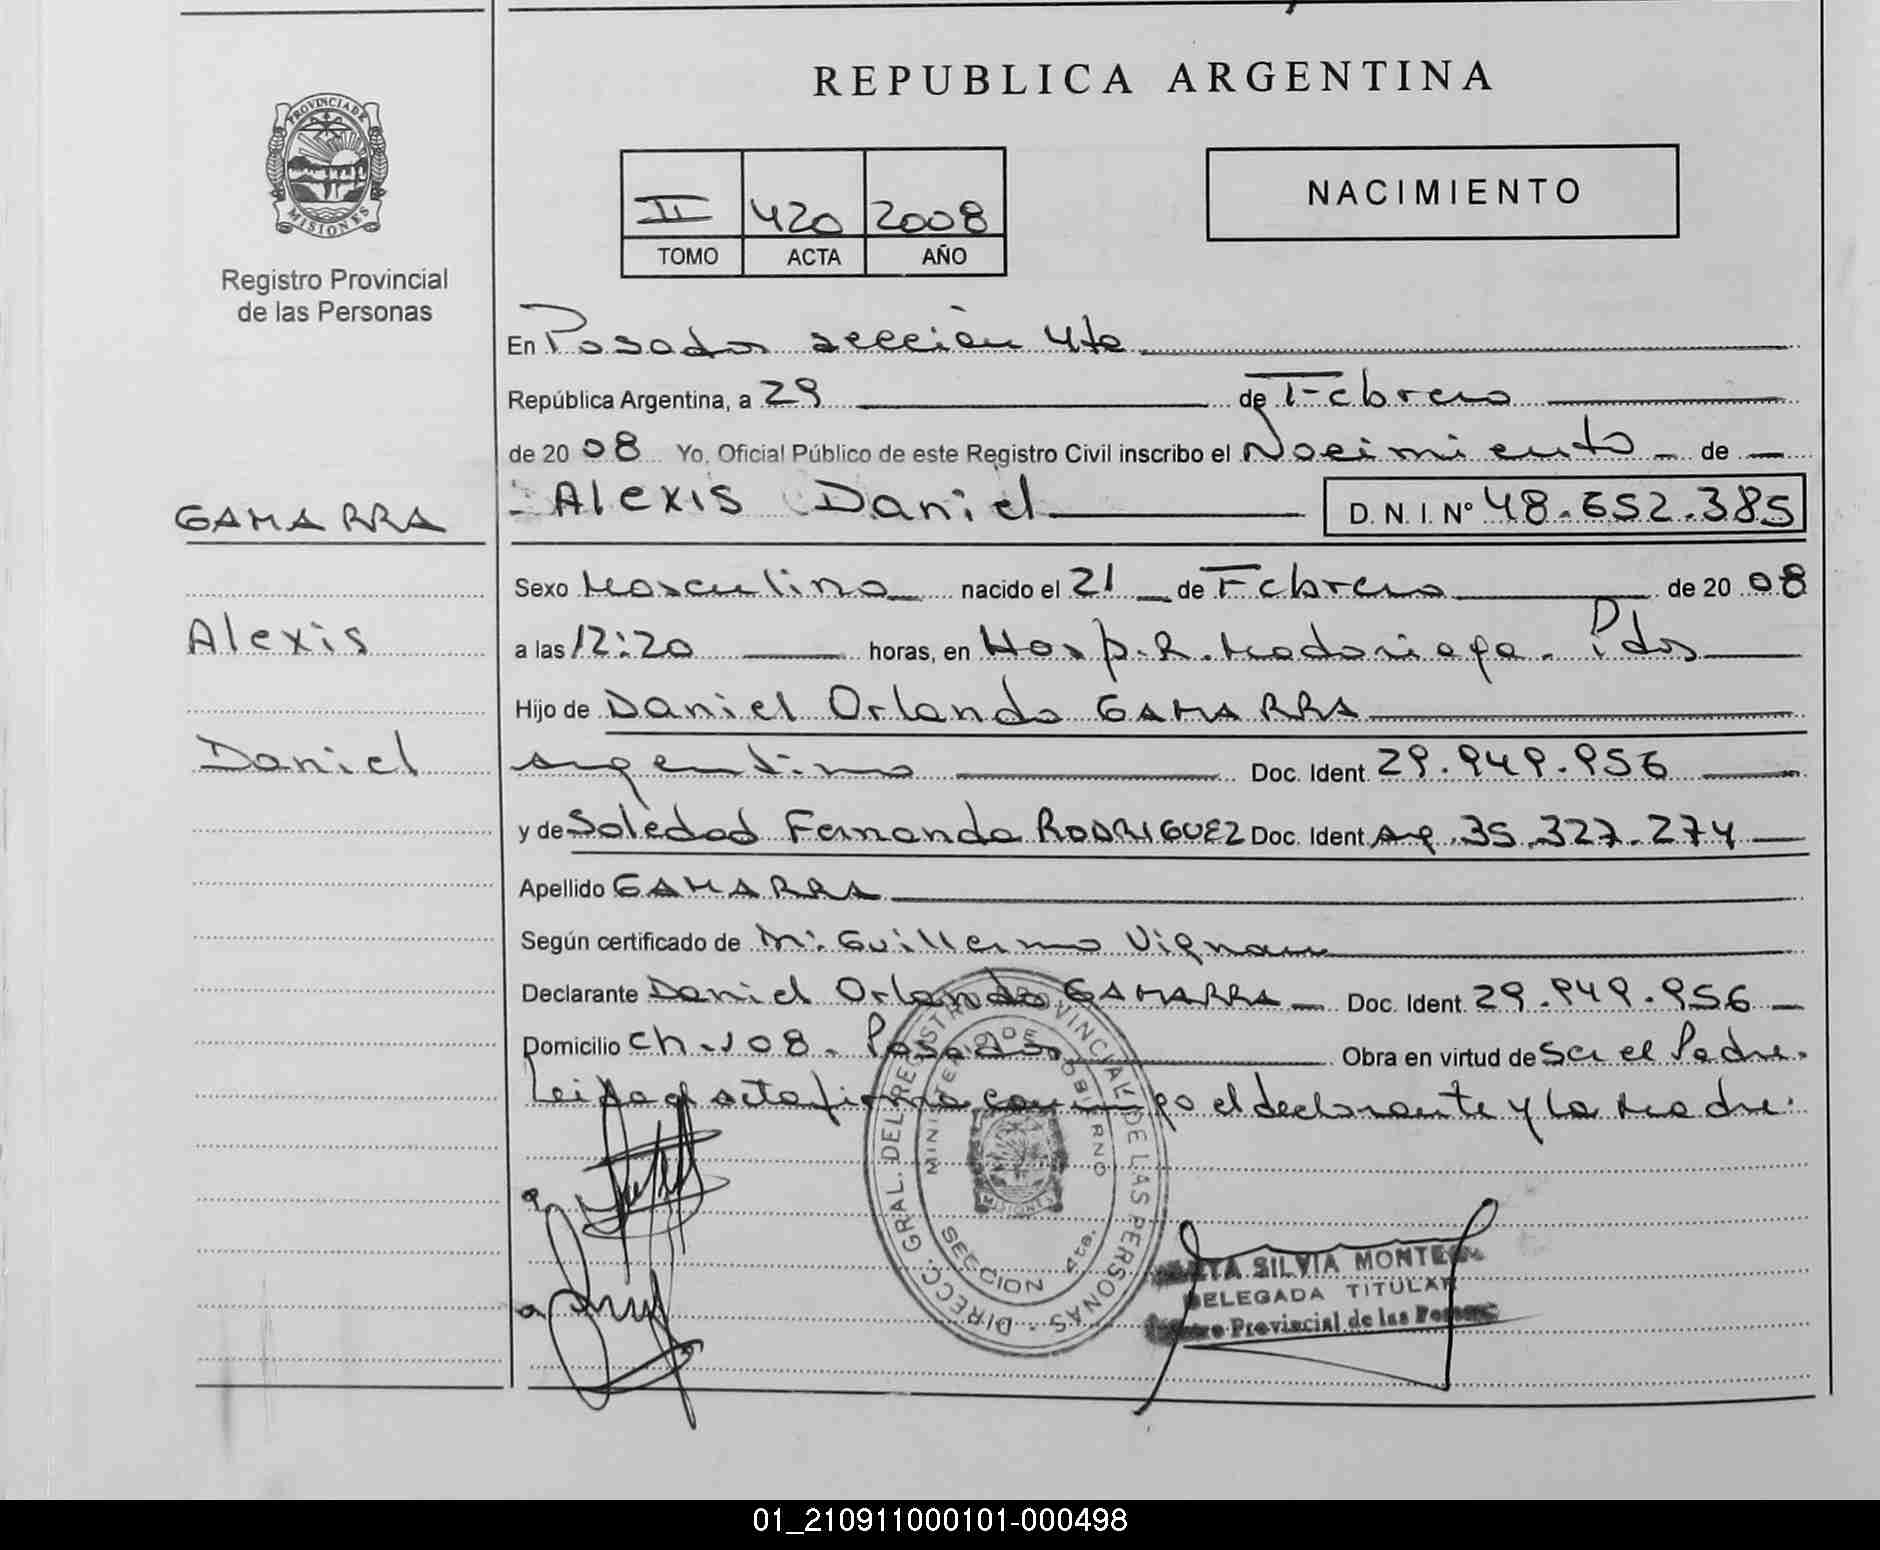 REPUBLICA ARGENTINA
PROVINCIA DE
MISIONES
Registro Provincial
de las Personas
II 420 2008
TOMO ACTA AÑO
NACIMIENTO
En Posadas sección 4ta
República Argentina, a 29 de Febrero
de 2008 Yo, Oficial Público de este Registro Civil inscribo el Nacimiento de
GAMARRA
Alexis Daniel D. N. I. Nº 48.652.385
Sexo Masculino nacido el 21 de Febrero de 2008
Alexis
a las 12:20 horas, en Hosp. R. Madariaga. Pdas
Hijo de Daniel Orlando GAMARRA
Daniel
argentino Doc. Ident. 29.949.956
y de Soledad Fernanda RODRIGUEZ Doc. Ident. Arg. 35.327.274
Apellido GAMARRA
Según certificado de Mº Guillermo
Declarante Daniel Orlando GAMARRA Doc. Ident. 29.949.956
Domicilio Ch. 108. Posadas Obra en virtud de Ser el Padre.
Leida el acta firma conmigo el declarante y la Madre.
DIRECC. GRAL. DEL REGISTRO PROVINCIAL DE LAS PERSONAS
MINISTERIO DE GOBIERNO
MISIONES
SECCION 4ta.
SILVIA
DELEGADA TITULAR
Provincial de las
01_210911000101-000498